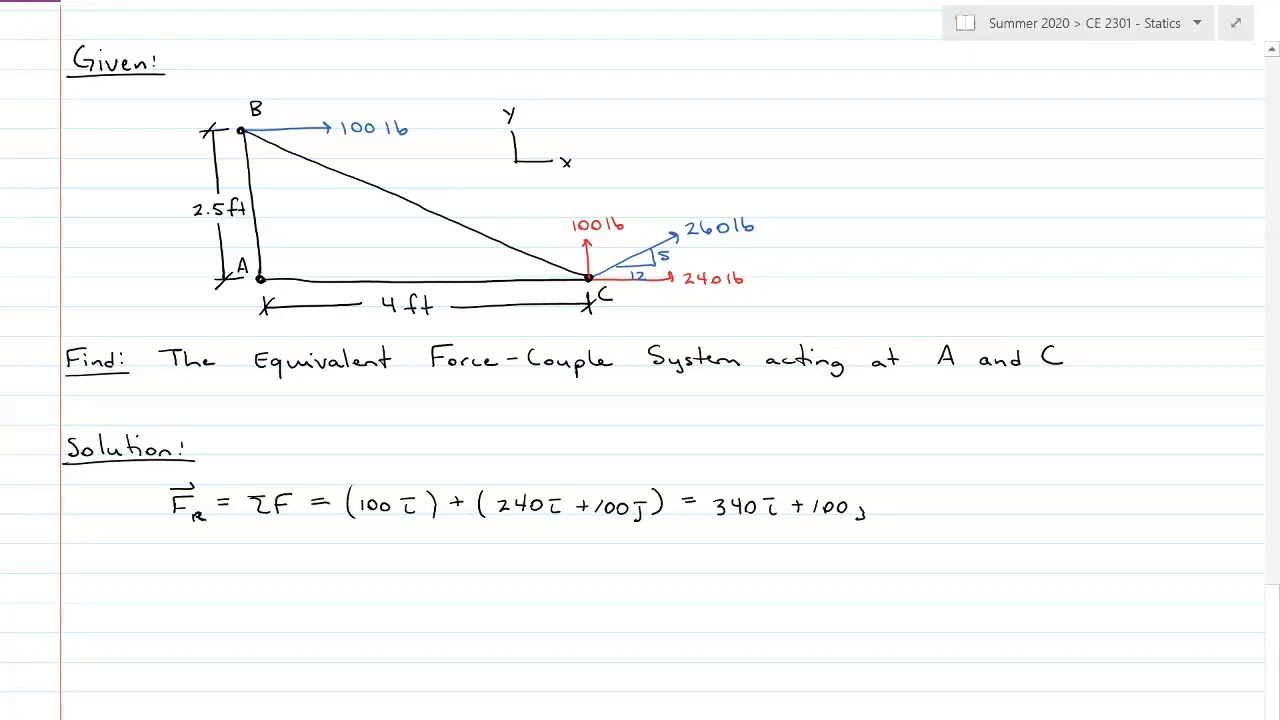 Summer 2020 > CE 2301 - Statics
Given:
B
100 lb
y
x
2.5 ft
100 lb
260 lb
5
12
A
240 lb
C
4 ft
Find: The Equivalent Force-Couple System acting at A and C
Solution:
F⃗R = ΣF = (100 i) + (240 i + 100 j) = 340 i + 100 j